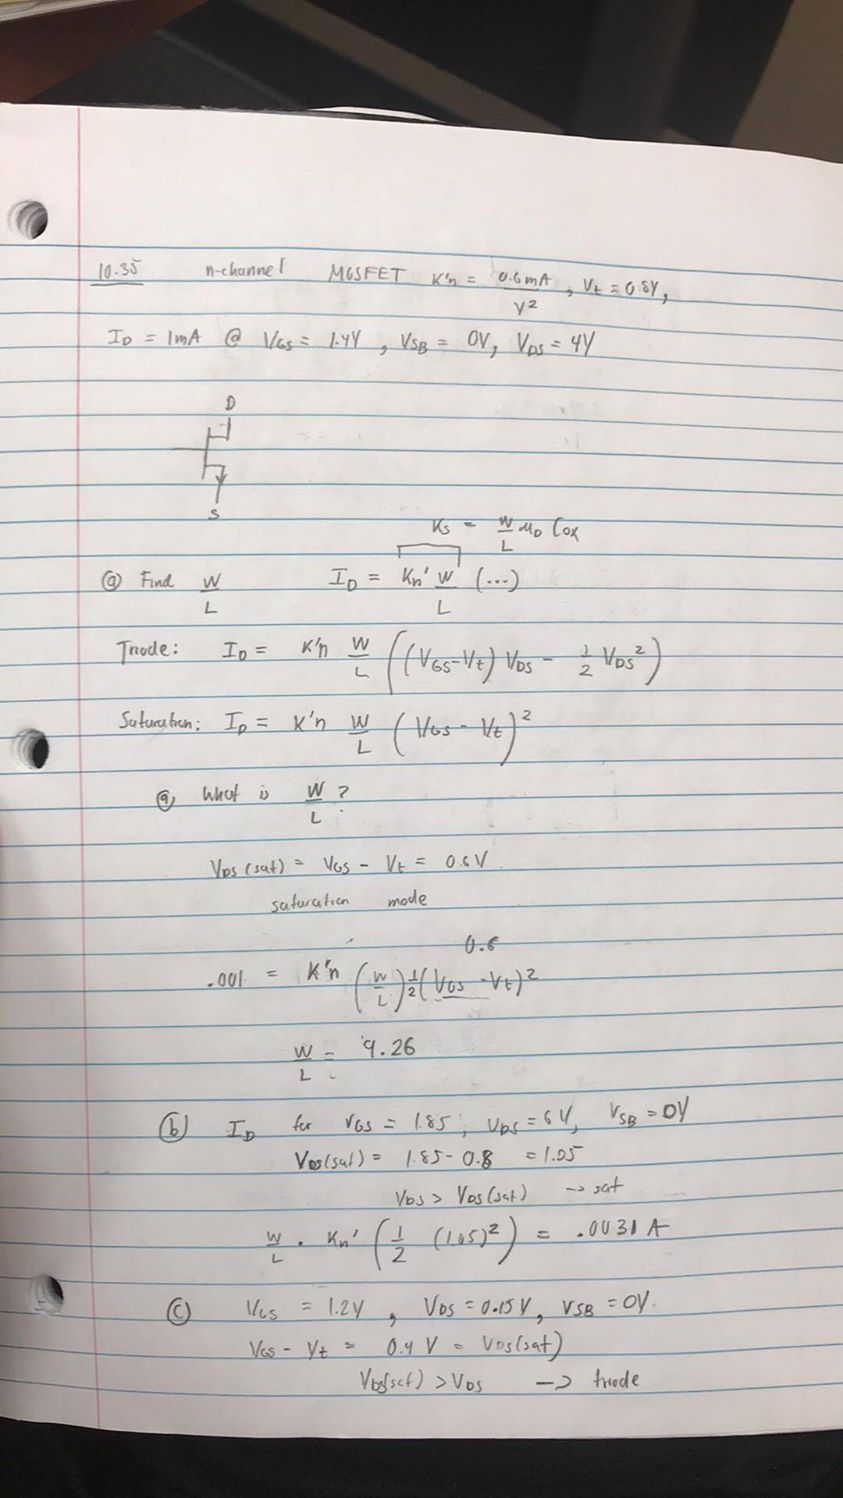 10.35 n-channel MOSFET K'n = 0.6mA/V², Vt = 0.8V,
ID = 1mA @ VGS = 1.4V, VSB = 0V, VDS = 4V
D
S
Ks = W/L μn Cox
ⓐ Find W/L ID = Kn' W/L (...)
Triode: ID = K'n W/L ((VGS-Vt) VDS - 1/2 VDS²)
Saturation: ID = K'n W/L (VGS - Vt)²
ⓐ What is W/L?
VDS(sat) = VGS - Vt = 0.6V
saturation mode
0.6
.001 = K'n (W/L) 1/2 (VGS - Vt)²
W/L = 9.26
ⓑ ID for VGS = 1.85, VDS = 6V, VSB = 0V
VDS(sat) = 1.85 - 0.8 = 1.05
VDS > VDS(sat) → sat
W/L · Kn' (1/2 (1.05)²) = .0031 A
ⓒ VGS = 1.2V, VDS = 0.15V, VSB = 0V
VGS - Vt = 0.4 V = VDS(sat)
VDS(sat) > VDS → triode